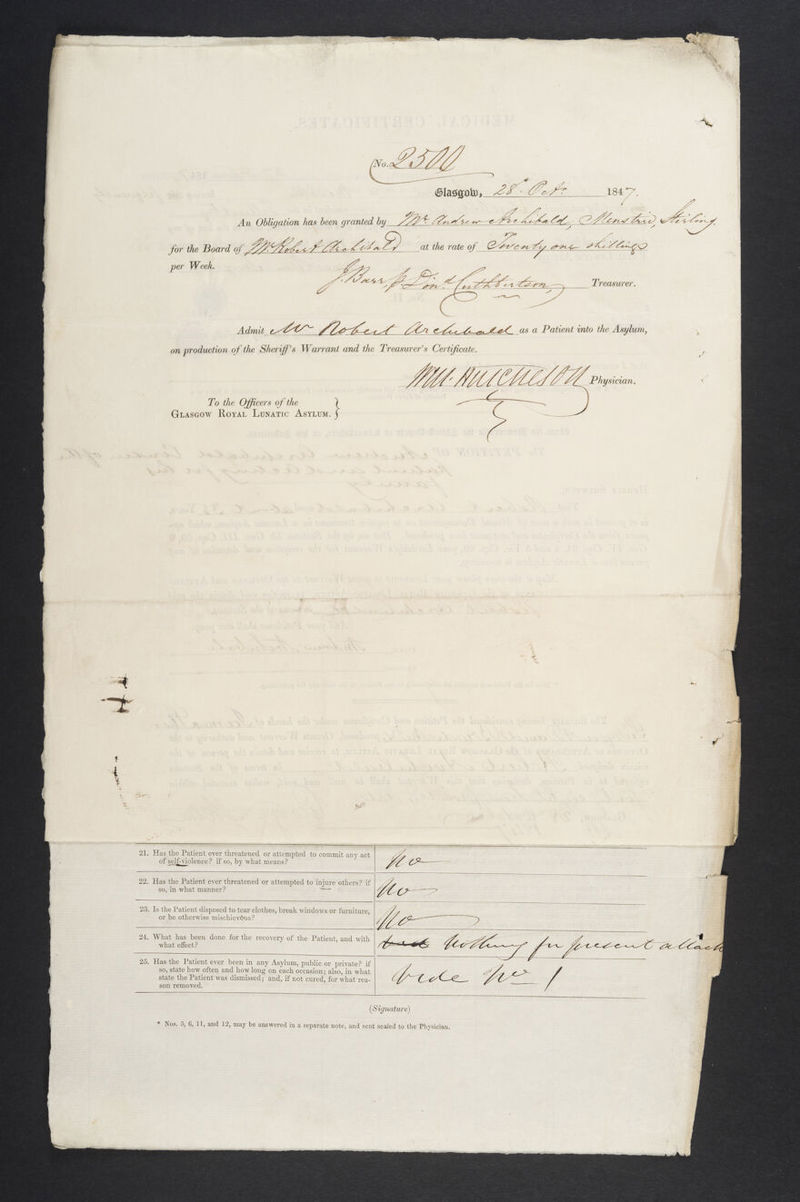 No. 2500
Glasgow, 28th Octr. 1847.
An Obligation has been granted by Mr. Andrew Archibald, Menstrie, Stirling.
for the Board of Mr. Robert Archibald at the rate of Twenty one shillings
per Week.
J. Barr Cuthbertson, Treasurer.
Admit Mr Robert Archibald as a Patient into the Asylum,
on production of the Sheriff's Warrant and the Treasurer's Certificate.
Wm. Hutcheson Physician.
To the Officers of the
Glasgow Royal Lunatic Asylum. }
21. Has the Patient ever threatened or attempted to commit any act
of self-violence? if so, by what means? No
22. Has the Patient ever threatened or attempted to injure others? if
so, in what manner? No
23. Is the Patient disposed to tear clothes, break windows or furniture,
or be otherwise mischievous? No
24. What has been done for the recovery of the Patient, and with
what effect? Nothing for present attack
25. Has the Patient ever been in any Asylum, public or private? if
so, state how often and how long on each occasion; also, in what
state the Patient was dismissed; and, if not cured, for what rea-
son removed. Vide No 1
(Signature)
* Nos. 5, 6, 11, and 12, may be answered in a separate note, and sent sealed to the Physician.